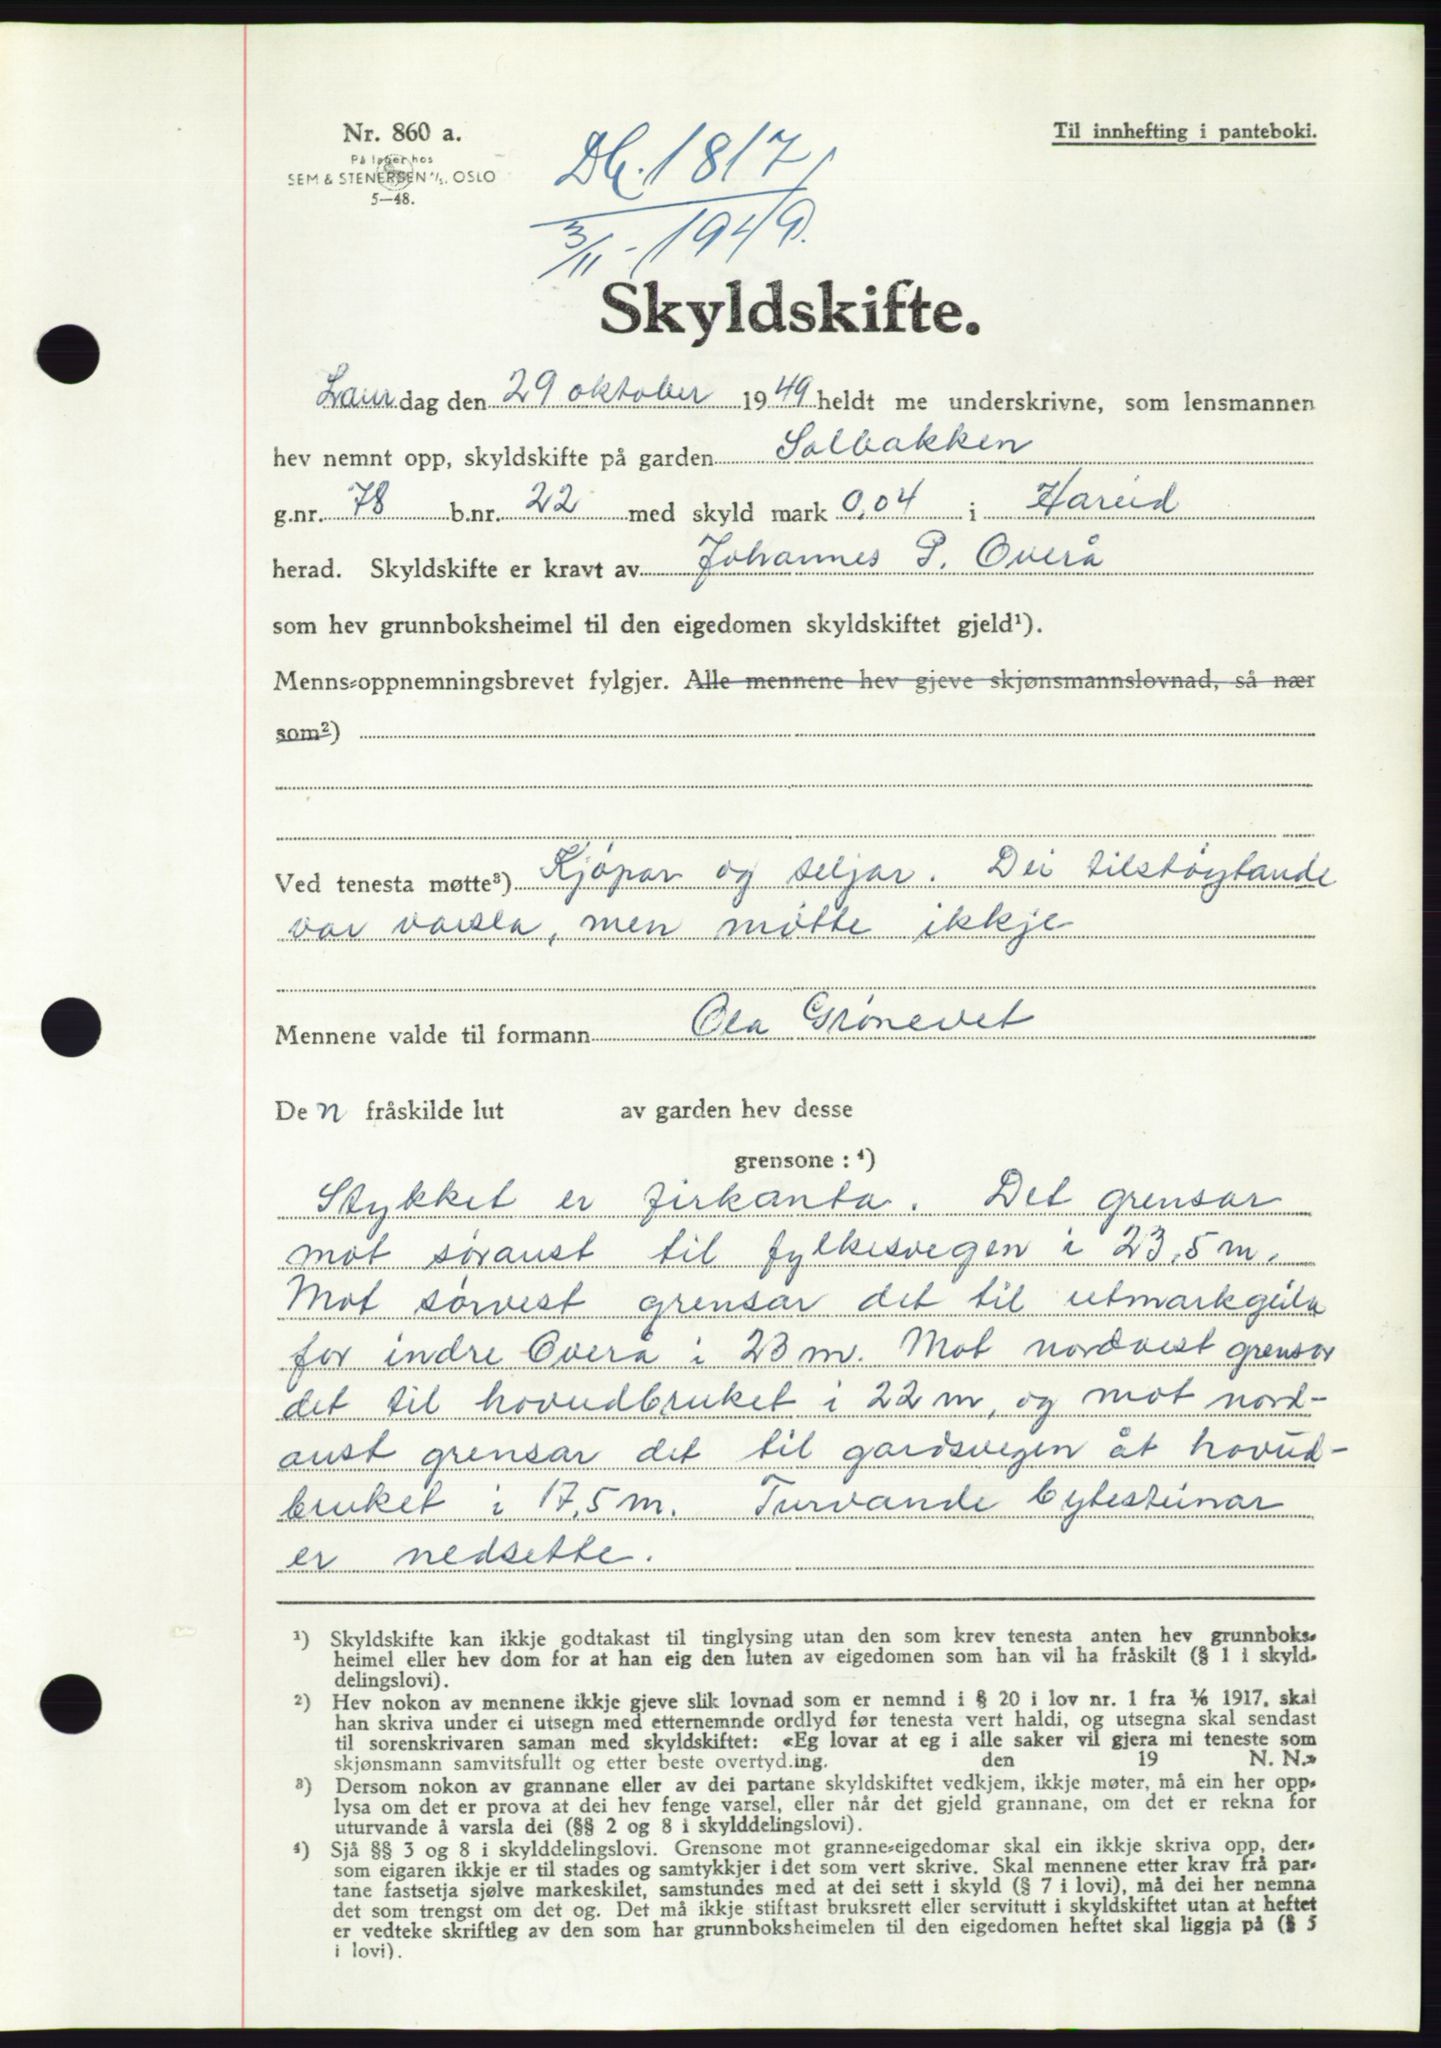 Nr. 860 a.
På lager hos
SEM & STENERSEN A/S. OSLO
5—48.
Til innhefting i panteboki.
Db. 1817
3/11 - 1949.
Skyldskifte.
Laur dag den 29 oktober 19 49 heldt me underskrivne, som lensmannen
hev nemnt opp, skyldskifte på garden Solbakken
g.nr. 78 b.nr. 22 med skyld mark 0,04 i Hareid
herad. Skyldskifte er kravt av Johannes P. Overå
som hev grunnboksheimel til den eigedomen skyldskiftet gjeld¹).
Menns-oppnemningsbrevet fylgjer. Alle mennene hev gjeve skjønsmannslovnad, så nær
som²)
Ved tenesta møtte³) Kjöpar og seljar. Dei tilstöytande
var varsla, men møtte ikkje
Mennene valde til formann Ola Grönevet
De n fråskilde lut av garden hev desse
grensone : ⁴)
Stykket er firkanta. Det grensar
mot søraust til fylkesvegen i 23,5 m.
Mot sørvest grensar det til utmarkgeila
for indre Overå i 23 m. Mot nordvest grensar
det til hovudbruket i 22 m, og mot nord-
aust grensar det til gardsvegen åt hovud-
bruket i 17,5 m. Turvande bytesteinar
er nedsette.
¹) Skyldskifte kan ikkje godtakast til tinglysing utan den som krev tenesta anten hev grunnboks-
heimel eller hev dom for at han eig den luten av eigedomen som han vil ha fråskilt (§ 1 i skyld-
delingslovi).
²) Hev nokon av mennene ikkje gjeve slik lovnad som er nemnd i § 20 i lov nr. 1 fra 1/6 1917, skal
han skriva under ei utsegn med etternemnde ordlyd før tenesta vert haldi, og utsegna skal sendast
til sorenskrivaren saman med skyldskiftet: «Eg lovar at eg i alle saker vil gjera mi teneste som
skjønsmann samvitsfullt og etter beste overtyd.ing. den 19 N. N.»
³) Dersom nokon av grannane eller av dei partane skyldskiftet vedkjem, ikkje møter, må ein her opp-
lysa om det er prova at dei hev fenge varsel, eller når det gjeld grannane, om det er rekna for
uturvande å varsla dei (§§ 2 og 8 i skylddelingslovi).
⁴) Sjå §§ 3 og 8 i skylddelingslovi. Grensone mot granne-eigedomar skal ein ikkje skriva opp, der-
som eigaren ikkje er til stades og samtykkjer i det som vert skrive. Skal mennene etter krav frå par-
tane fastsetja sjølve markeskilet, samstundes med at dei sett i skyld (§ 7 i lovi), må dei her nemna
det som trengst om det og. Det må ikkje stiftast bruksrett eller servitutt i skyldskiftet utan at heftet
er vedteke skriftleg av den som har grunnboksheimelen til den eigedomen heftet skal liggja på (§ 5
i lovi).